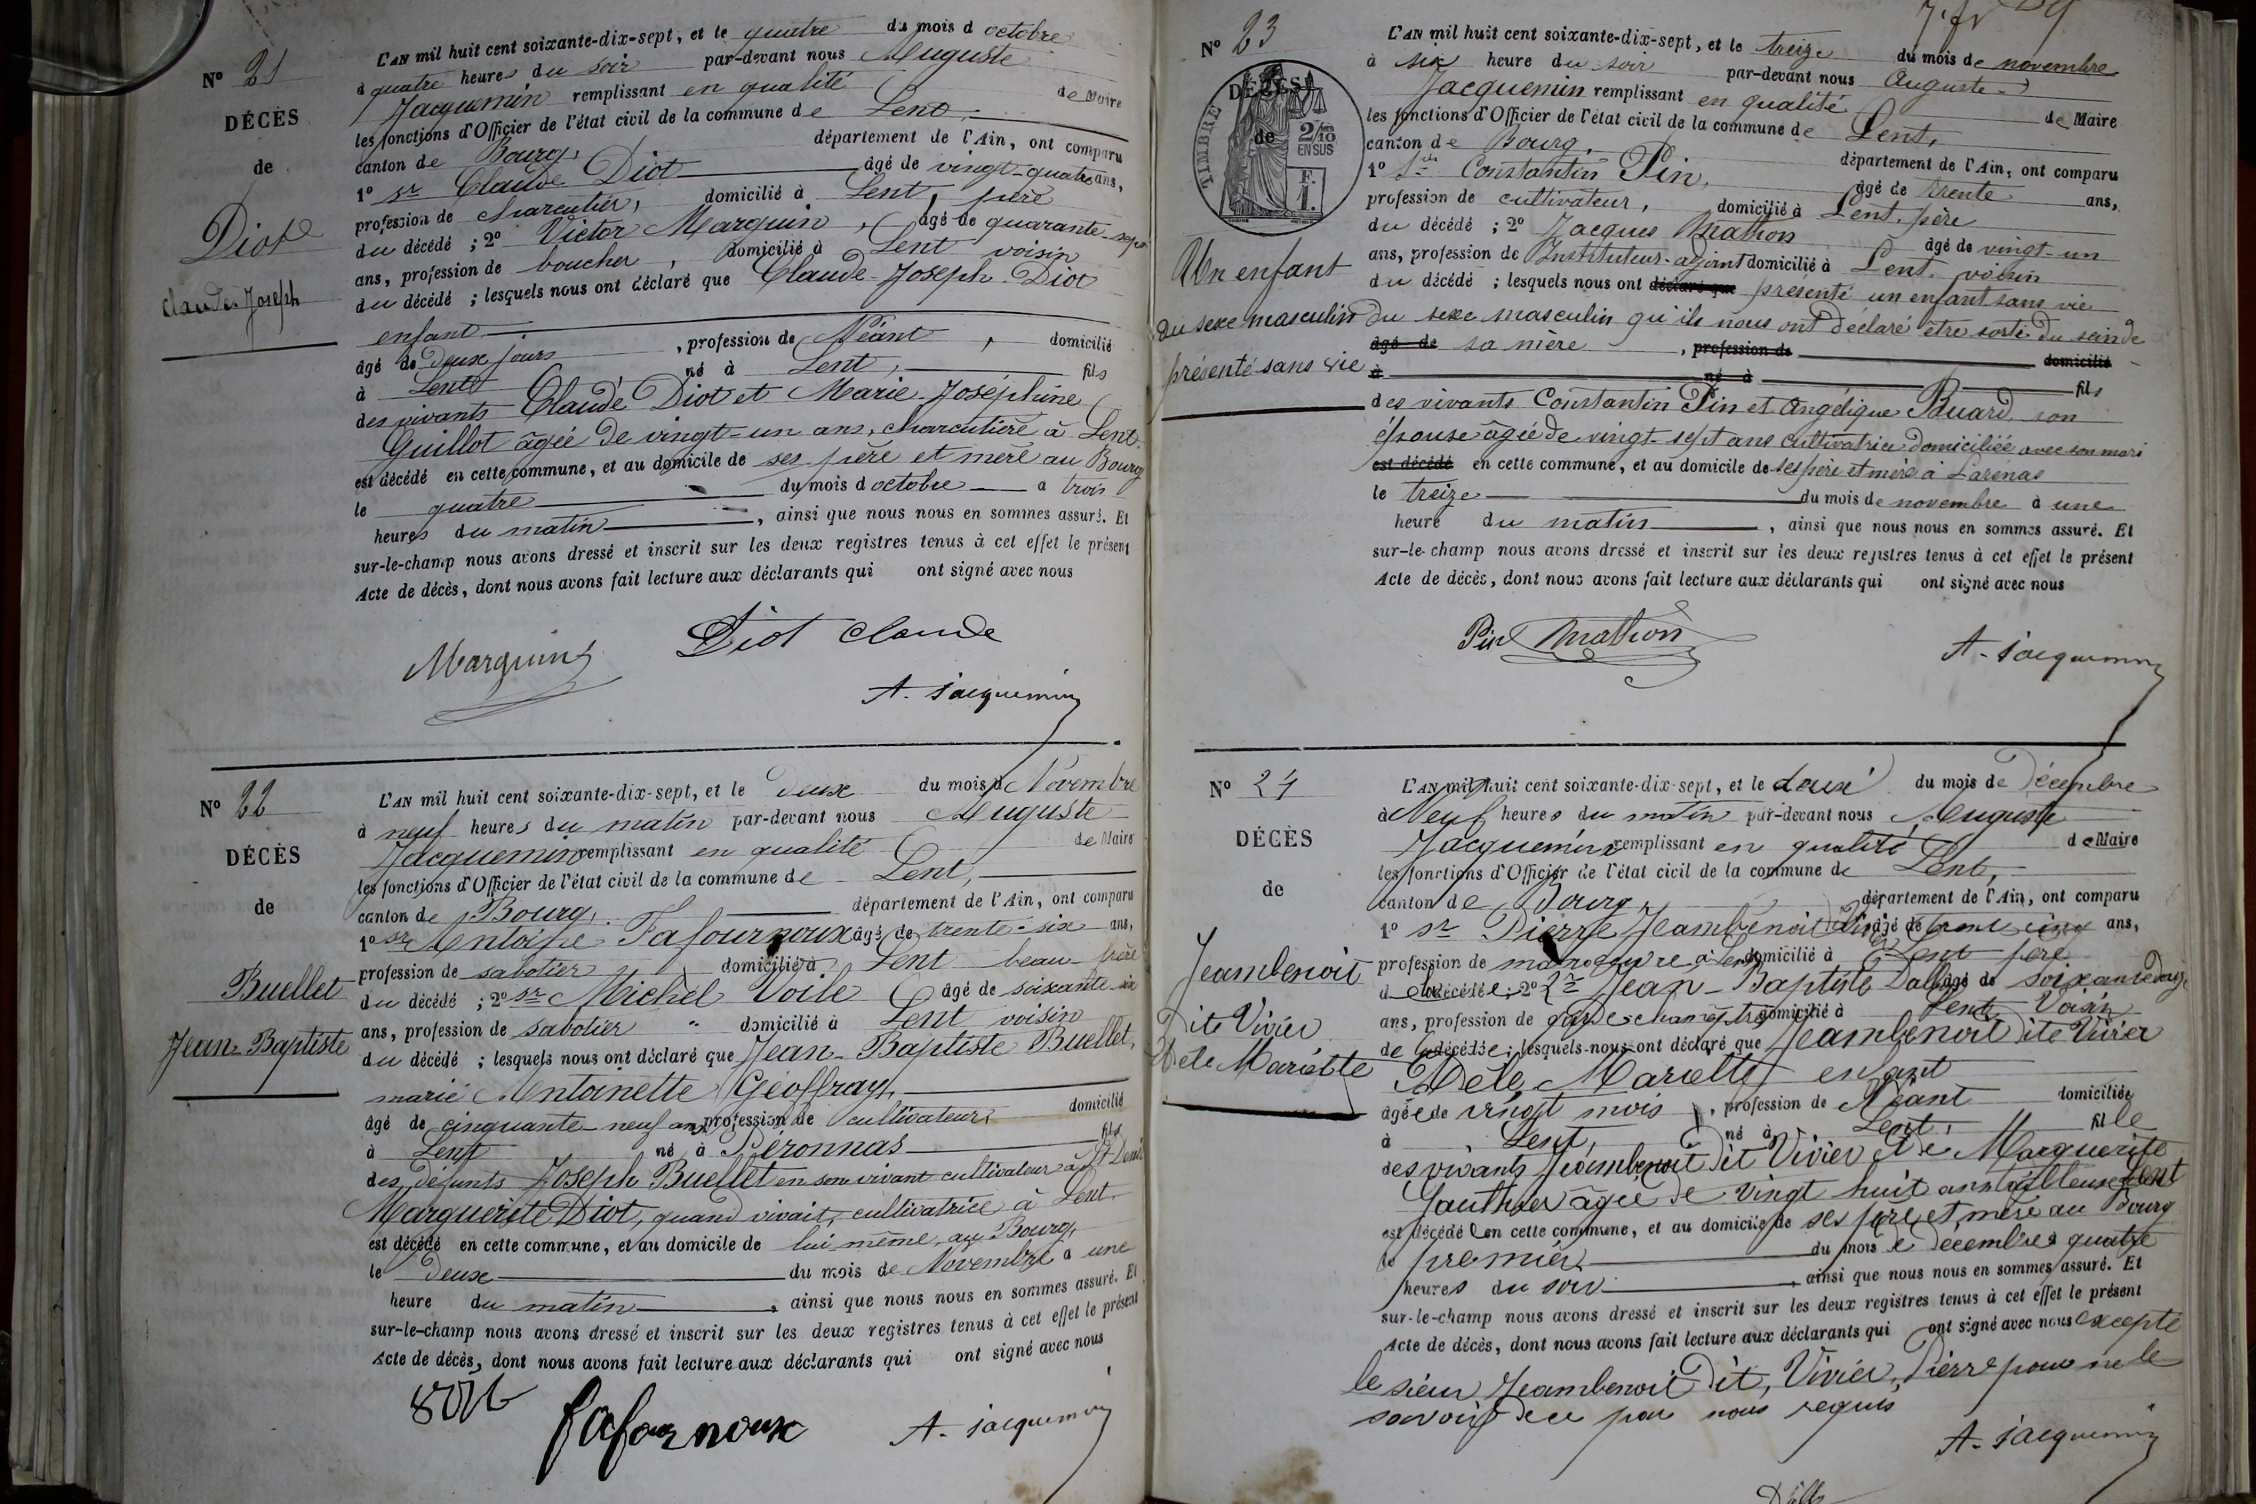 N° 21
DÉCÈS
de
Diot
Claude-Joseph
L'AN mil huit cent soixante-dix-sept, et le quatre du mois d octobre
à quatre heures du soir par-devant nous Auguste
Jacquemin remplissant en qualité de Maire
les fonctions d'Officier de l'état civil de la commune de Lent
canton de Bourg, département de l'Ain, ont comparu
1° sr Claude Diot âgé de vingt-quatre ans,
profession de charcutier, domicilié à Lent, père
du décédé ; 2° Victor Marquin, âgé de quarante-sept
ans, profession de boucher, domicilié à Lent voisin
du décédé ; lesquels nous ont déclaré que Claude-Joseph Diot
enfant
âgé de deux jours, profession de Néant, domicilié
à Lent né à Lent, fils
des vivants Claude Diot et Marie-Joséphine
Guillot âgée de vingt-un ans, charcutière à Lent
est décédé en cette commune, et au domicile de ses père et mère au Bourg
le quatre du mois d octobre à trois
heures du matin, ainsi que nous nous en sommes assuré. Et
sur-le-champ nous avons dressé et inscrit sur les deux registres tenus à cet effet le présent
Acte de décès, dont nous avons fait lecture aux déclarants qui ont signé avec nous
Marquin Diot Claude
A. Jacquemin
N° 22
DÉCÈS
de
Buellet
Jean-Baptiste
L'AN mil huit cent soixante-dix-sept, et le deux du mois de Novembre
à neuf heures du matin par-devant nous Auguste
Jacquemin remplissant en qualité de Maire
les fonctions d'Officier de l'état civil de la commune de Lent,
canton de Bourg, département de l'Ain, ont comparu
1° sr Antoine Fafournoux âgé de trente-six ans,
profession de sabotier domicilié à Lent beau-frère
du décédé ; 2° sr Michel Voile âgé de soixante-six
ans, profession de sabotier " domicilié à Lent voisin
du décédé ; lesquels nous ont déclaré que Jean-Baptiste Buellet,
marié Antoinette Géoffray,
âgé de cinquante-neuf ans profession de cultivateur, domicilié
à Lent né à Péronnas fils
des défunts Joseph Buellet en son vivant cultivateur à St Denis
Marguerite Diot, quand vivait, cultivatrice à Lent.
est décédé en cette commune, et au domicile de lui même, au Bourg,
le deux du mois de Novembre à une
heure du matin, ainsi que nous nous en sommes assuré. Et
sur-le-champ nous avons dressé et inscrit sur les deux registres tenus à cet effet le présent
Acte de décès, dont nous avons fait lecture aux déclarants qui ont signé avec nous
fafournoux A. Jacquemin
N° 23
DÉCÈS
de
TIMBRE
2/10
EN SUS
F.
1.
Un enfant
du sexe masculin
présenté sans vie
L'AN mil huit cent soixante-dix-sept, et le treize du mois de novembre
à six heure du soir par-devant nous Auguste
Jacquemin remplissant en qualité de Maire
les fonctions d'Officier de l'état civil de la commune de Lent,
canton de Bourg, département de l'Ain, ont comparu
1° sr Constantin Pin, âgé de trente ans,
profession de cultivateur, domicilié à Lent, père
du décédé ; 2° Jacques Mathon âgé de vingt-un
ans, profession de Instituteur-adjoint domicilié à Lent, voisin
du décédé ; lesquels nous ont déclaré que présenté un enfant sans vie
du sexe masculin qu'ils nous ont déclaré être sorti du sein de
âgé de sa mère, profession de domicilié
à né à fils
des vivants Constantin Pin et Angélique Buard, son
épouse âgée de vingt-sept ans cultivatrice domiciliée avec son mari
est décédé en cette commune, et au domicile de ses père et mère à Larenas
le treize du mois de novembre à une
heure du matin, ainsi que nous nous en sommes assuré. Et
sur-le-champ nous avons dressé et inscrit sur les deux registres tenus à cet effet le présent
Acte de décès, dont nous avons fait lecture aux déclarants qui ont signé avec nous
Pin Mathon
A. Jacquemin
N° 24
DÉCÈS
de
Jeambenoit
dite Vivier
Adèle Mariette
L'AN mil huit cent soixante-dix-sept, et le deux du mois de Décembre
à Neuf heures du matin par-devant nous Auguste
Jacquemin remplissant en qualité de Maire
les fonctions d'Officier de l'état civil de la commune de Lent,
canton de Bourg, département de l'Ain, ont comparu
1° sr Pierre Jeambenoit dit Vivier âgé de trente cinq ans,
profession de manoeuvre à Lent domicilié à Lent père
de la décédée ; 2° sr Jean-Baptiste âgé de soixante douze
ans, profession de garde champêtre domicilié à Lent, Voisin
de la décédée ; lesquels nous ont déclaré que Jeambenoit dite Vivier
Adèle Mariette enfant
âgée de vingt mois, profession de Néant domiciliée
à Lent, né à Lent, fille
des vivants Jeambenoit dit Vivier et de Marguerite
Gauthier âgée de vingt huit ans tailleuse à Lent
est décédé en cette commune, et au domicile de ses père et mère au Bourg
le premier du mois de décembre à quatre
heures du soir, ainsi que nous nous en sommes assuré. Et
sur-le-champ nous avons dressé et inscrit sur les deux registres tenus à cet effet le présent
Acte de décès, dont nous avons fait lecture aux déclarants qui ont signé avec nous excepté
le sieur Jeambenoit dit, Vivier, Pierre pour ne le
savoir de ce par nous requis
A. Jacquemin